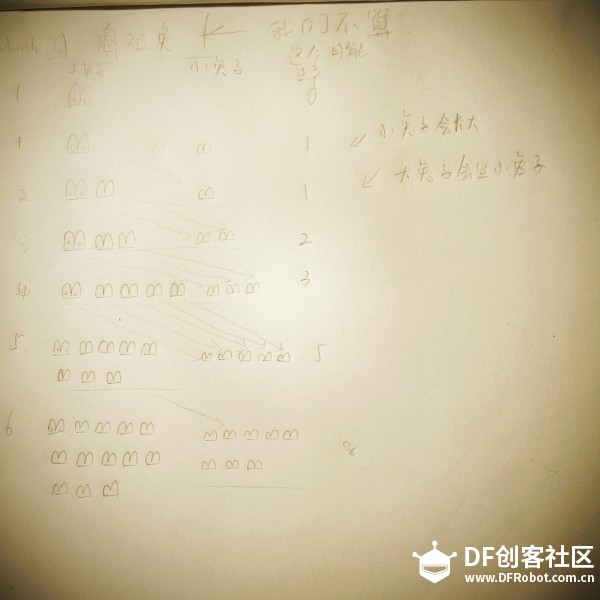 祖兔 ← 我们不算
大兔子 小兔子
0. 0
1. 1 ↙ 小兔子会长大
2 1 ↙ 大兔子会生小兔子
3 2
4. 3
5. 5
6 8
DF创客社区
www.DFRobot.com.cn